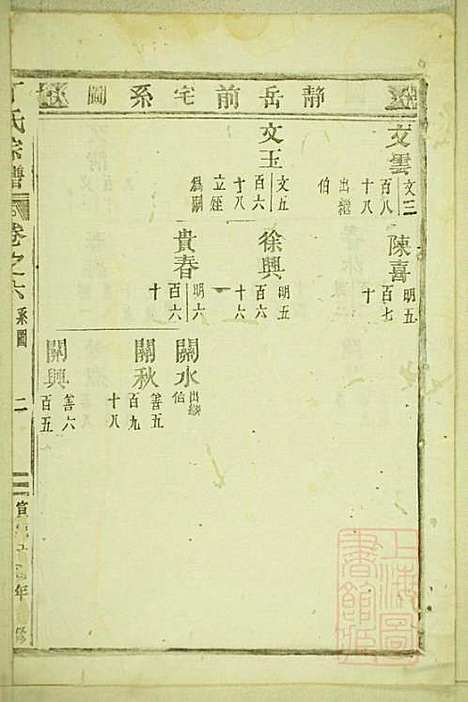 靜岳前宅系圖
文雲
文三
百八
十八
出繼
伯
陳喜
明五
百七
十
文玉
文五
百六
十八
立姪
爲嗣
徐興
明五
百六
十六
貴春
明六
百六
十
關水
出繼
伯
關秋
善五
百九
十八
關興
善六
百五
丁氏宗譜
卷之六
系圖
二
宣
年
修
上海圖
書館藏